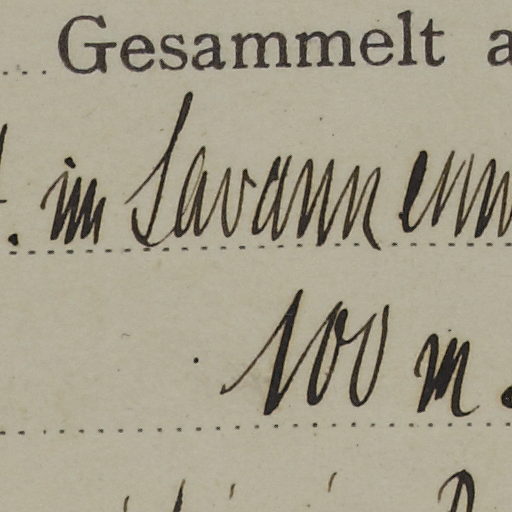 Gesammelt a
im Savannenw
100 m.